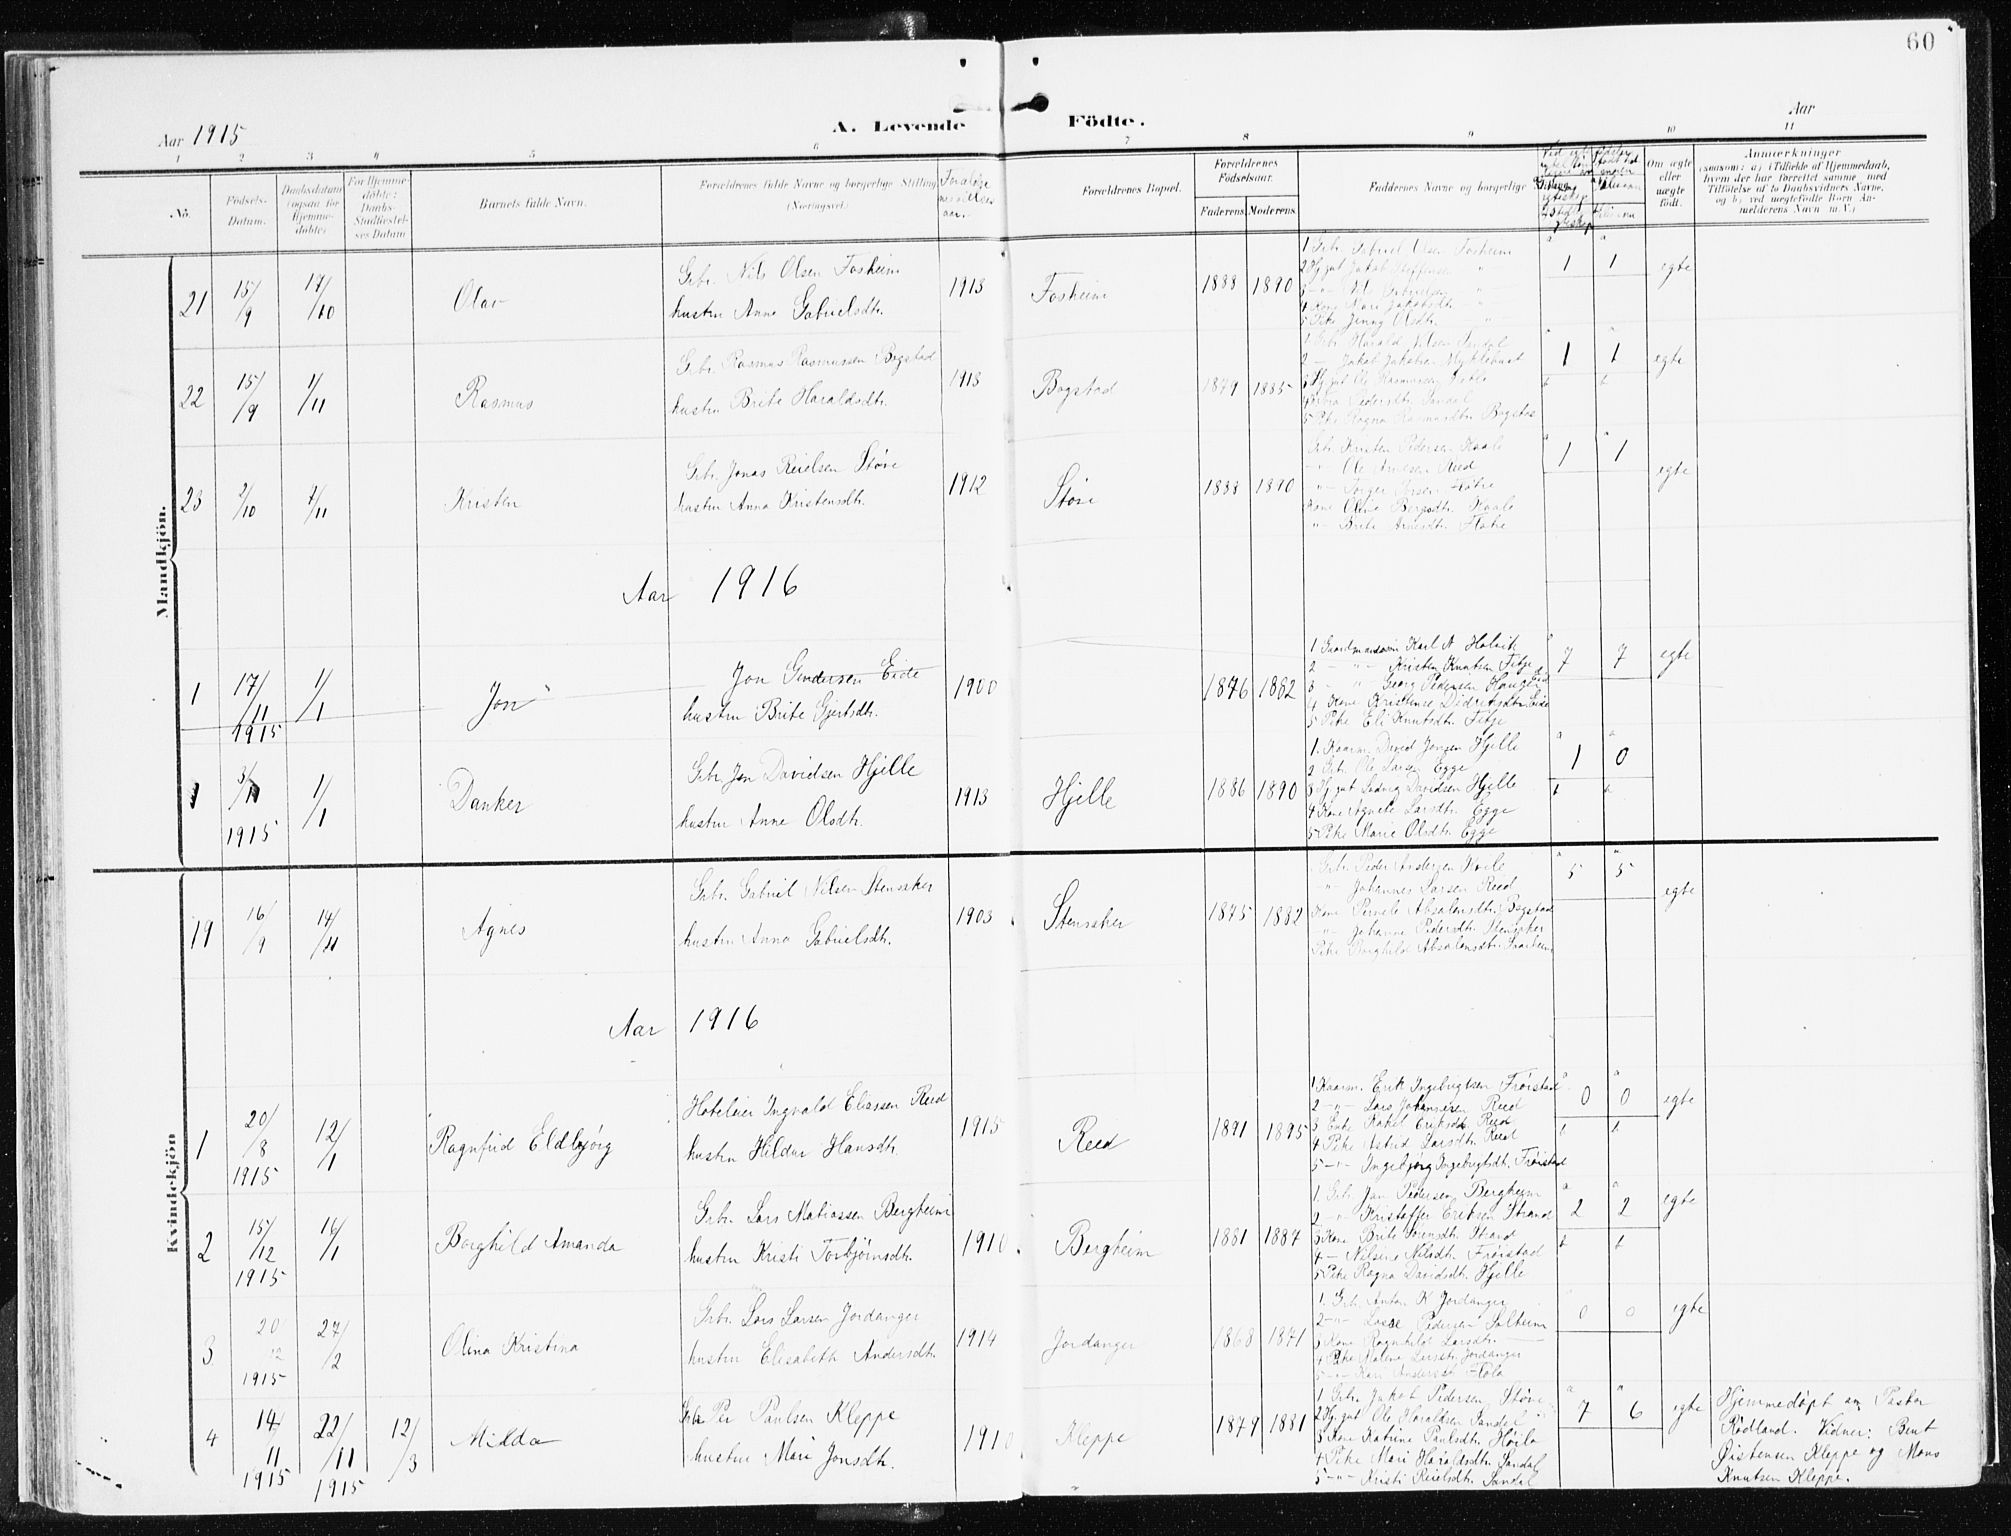 60
Aar 1915
A. Levende Födte.
Aar
1 2 3 4 5 6 7 8 9 10 11
No.
Födsels-Datum.
Daabsdatum (ogsaa for Hjemmedöbte)
For Hjemmedöbte: Daabs-Stadfæstelses Datum
Barnets fulde Navn.
Forældrenes fulde Navne og borgerlige Stilling (Næringsvei)
Forældrenes Bopæl.
Forældrenes Födselsaar.
Faderens Moderens
Faddernes Navne og borgerlige
Om ægte eller uægte født.
Anmærkninger
(saasom: a) i Tilfælde af Hjemmedaab, hvem der har forrettet samme, med Tilföielse af to Daabsvidners Navne, og b) ved uægtefödte Børn Anmelderens Navn m. V.)
Mandkjön.
21 15/9 17/10 Olav
Grbr. Nils Olsen Fosheim
hustru Anna Gabrielsdtr. 1913
Fosheim 1888 1890
1 Grbr. Gabriel Olsen Fosheim
2 Hj.gut Jakob Steffensen "
4 Kone Mari Jakobsdtr. "
5 Pike Jenny Olsdtr. "
1 1 egte
22 15/9 1/11 Rasmus
Grbr. Rasmus Rasmussen Bogstad
hustru Brite Haraldsdtr. 1913
Bogstad 1879 1885
1 Grbr. Harald Nilsen Sandal
2 — Jakob Jakobsen Myklebust
3 Hj.gut Ole Rasmussen
5 Pike Ragna Rasmusdtr. Bogstad
1 1 egte
23 2/10 7/11 Kristen
Grbr. Jonas Reielsen Støve
hustru Anna Kristensdtr. 1912
Støve 1888 1890
Grbr. Kristen Pedersen Kaale
-"- Ole Arnesen Reed
Kone Oline Bergsdtr. Kaale
-"- Brite Arnesdtr. Flote
1 1 egte
Aar 1916
1 17/11 1915 1/1 Jon
Jon Gundersen Eide
hustru Brite Gjertsdtr. 1900
1876 1882
1 Gaardmandssøn Karl A Holvik
2 — " — Kristen Knutsen Fitje
3 — " — Georg Pedersen Hauge
4 Kone Kristense Didriksdtr. Eide
5 Pike Eli Knutsdtr. Fitje
7 7 egte
1915 1/1 Danker
Grbr. Jon Davidsen Hjelle
hustru Anne Olsdtr. 1913
Hjelle 1886 1890
1. Kaarm. David Jonsen Hjelle
2 Grbr. Ole Larsen Egge
3 Hj.gut Ludvig Davidsen Hjelle
4 Kone Agnete Larsdtr. Egge
5 Pike Marie Olsdtr. Egge
1 0
Kvindekjön
19 16/9 14/11 Agnes
Grbr. Gabriel Nilsen Stensaker
hustru Anna Gabrielsdtr. 1903
Stensaker 1875 1882
Grbr. Peder Andersen
-"- Johannes Larsen Reed
Kone Pernele Absalonsdtr. Bogstad
-"- Johanne Pedersdtr. Stensaker
Pike Borghild Absalonsdtr.
5 5 egte
Aar 1916
1 20/8 1915 12/1 Ragnfrid Eldbjørg
Hoteleier Ingvald Eliassen Reed
hustru Hildur Hansdtr. 1915
Reed 1891 1895
1 Kaarm. Erik Ingebrigtsen Frøistad
2 -"- Lars Johannesen Reed
3 Enke Rakel Eriksdtr. Reed
4 Pike Astrid Larsdtr. Reed
5 -"- Ingebjørg Ingebrigtsdtr. Frøistad
0 0 egte
2 15/12 1915 16/1 Borghild Amanda
Grbr. Lars Matiassen Bergheim
hustru Kristi Torbjørnsdtr. 1910
Bergheim 1881 1887
1. Grbr. Jon Pedersen Bergheim
2 -"- Kristoffer Eriksen Strand
3 Kone Brite Sørensdtr. Strand
4 — Nilsine Nilsdtr. Frøistad
5 Pike Ragna Davidsdtr. Hjelle
2 2 egte
3 20/12 1915 27/2 Olina Kristina
Grbr. Lars Larsen Jordanger
hustru Elisabeth Andersdtr. 1914
Jordanger 1868 1871
1. Grb. Anton K Jordanger
2 -"- Lasse Pedersen Solheim
3 Kone Ragnhild Larsdtr. —
4 Pike Malene Larsdtr. Jordanger
5 -"- Kari Andersdtr. Flola
0 0 egte
4 14/11 1915 22/11 1915 12/3 Milda
Grbr. Per Paulsen Kleppe
hustru Mari Jonsdtr. 1910
Kleppe 1879 1881
1 Grbr. Jakob Pedersen Støve
2 Hj.gut Ole Haraldsen Sandal
3 Kone Katrine Paulsdtr.
4 Pike Mari Haraldsdtr. Sandal
5 -"- Kristi Reielsdtr. Sandal
7 6 egte
Hjemmedøpt av Pastor
Rødland. Vidner: Bent
Øistensen Kleppe og Mons
Knutsen Kleppe.